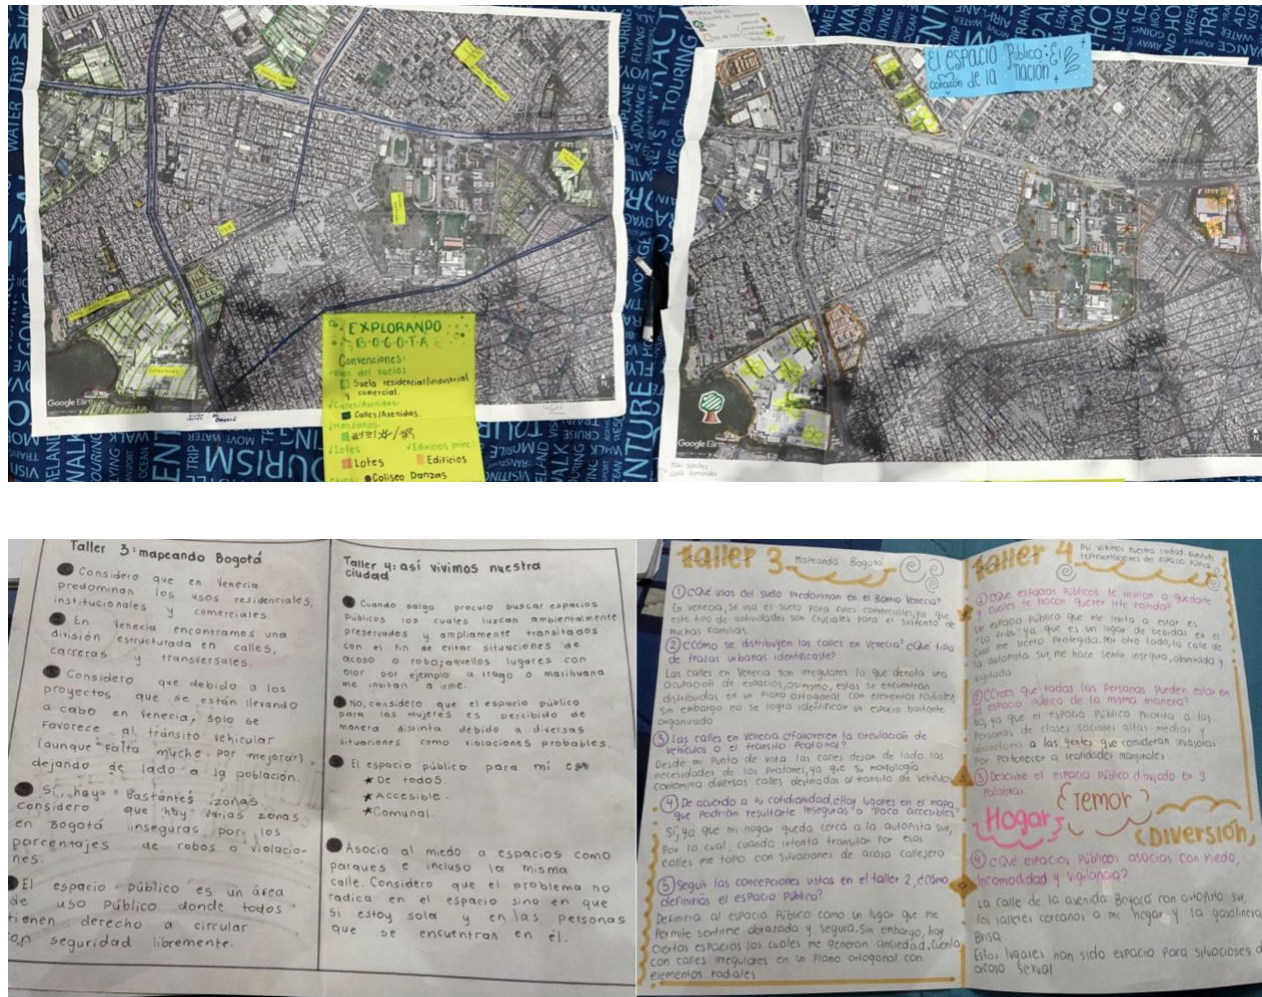 El espacio público: El
corazón de la nación
EXPLORANDO
BOGOTA
Convenciones:
Usos del suelo:
Suelo residencial/industrial
y comercial.
Calles/Avenidas:
Calles/Avenidas.
Manzanas:
Lotes
Edificios princ:
Lotes
Edificios
Coliseo Danzas
Google Earth
Google Earth
Taller 3: mapeando Bogotá
Considero que en Venecia
predominan los usos residenciales,
institucionales y comerciales.
En Venecia encontramos una
división estructurada en calles,
carreras y transversales.
Considero que debido a los
proyectos que se están llevando
a cabo en Venecia, solo se
Favorece al tránsito vehicular
(aunque falta mucho por mejorar)
dejando de lado a la población.
Sí, hay bastantes zonas.
considero que hay varias zonas
en Bogotá inseguras por los
porcentajes de robos o violacio-
nes.
El espacio público es un área
de uso público donde todos
tienen derecho a circular
con seguridad libremente.
Taller 4: así vivimos nuestra
ciudad
Cuando salgo procuro buscar espacios
públicos los cuales luzcan ambientalmente
preservados y ampliamente transitados
con el fin de evitar situaciones de
acoso o robo; aquellos lugares con
olor por ejemplo a trago o marihuana
me invitan a irme.
No, considero que el espacio público
para las mujeres es percibido de
manera distinta debido a diversas
situaciones como violaciones probables.
El espacio público para mí es
De todos.
Accesible.
Comunal.
Asocio al miedo a espacios como
parques e incluso la misma
calle. Considero que el problema no
radica en el espacio sino en que
si estoy sola y en las personas
que se encuentran en él.
Taller 3 Mapeando Bogotá
1 ¿Qué usos del suelo predominan en el Barrio Venecia?
En Venecia, se usa el suelo para fines comerciales, ya que
este tipo de actividades son cruciales para el sustento de
muchas familias.
2 ¿Cómo se distribuyen las calles en Venecia? ¿Qué tipo
de trazas urbanas identificaste?
Las calles en Venecia son irregulares lo que denota una
ocupación de espacios, asimismo, estas se encuentran
distribuidas en un plano ortogonal con elementos radiales,
sin embargo no se logra identificar un espacio bastante
organizado
3 ¿Las calles en Venecia favorecen la circulación de
vehículos o el tránsito peatonal?
Desde mi punto de vista las calles dejan de lado las
necesidades de los peatones, ya que su morfología
contamina diversas calles destinadas al tránsito de vehículos
4 De acuerdo a tu cotidianidad, ¿Hay lugares en el mapa
que podrían resultarte inseguras o poco accesibles?
Sí, ya que mi hogar queda cerca a la autopista sur,
Por lo cual, cuando intento transitar por esas
calles me topo con situaciones de acoso callejero
5 Según las concepciones vistas en el taller 2, ¿Cómo
definirías el espacio Público?
Definiría al espacio Público como un lugar que me
Permite sentirme abrazada y segura. Sin embargo, hay
ciertos espacios los cuales me generan ansiedad. Cuenta
con calles irregulares en un Plano ortogonal con
elementos radiales
Taller 4 Así vivimos nuestra ciudad:
representaciones de espacio Público
1 ¿Qué espacios Públicos te invitan a quedarte
y cuáles te hacen querer irte rápido?
Un espacio Público que me invita a estar es
ya que es un lugar de bebidas en el
cual me siento Protegida. Por otro lado, la calle de
la autopista sur, me hace sentir insegura, observada y
vigilada
2 ¿Crees que todas las Personas Pueden estar en
el espacio Público de la misma manera?
No, ya que el espacio Público Prioriza a las
Personas de clases sociales altas-medias y
abandona a las gentes que consideran invasoras
Por Pertenecer a realidades marginales
3 Describe el espacio Público dibujado en 3
Palabras
Hogar
Temor
Diversión
4 ¿Qué espacios Públicos asocias con miedo,
incomodidad y vigilancia?
La calle de la avenida Boyacá con autopista sur,
los talleres cercanos a mi hogar y la gasolinera
Brisa
Estos lugares han sido espacio para situaciones de
acoso sexual